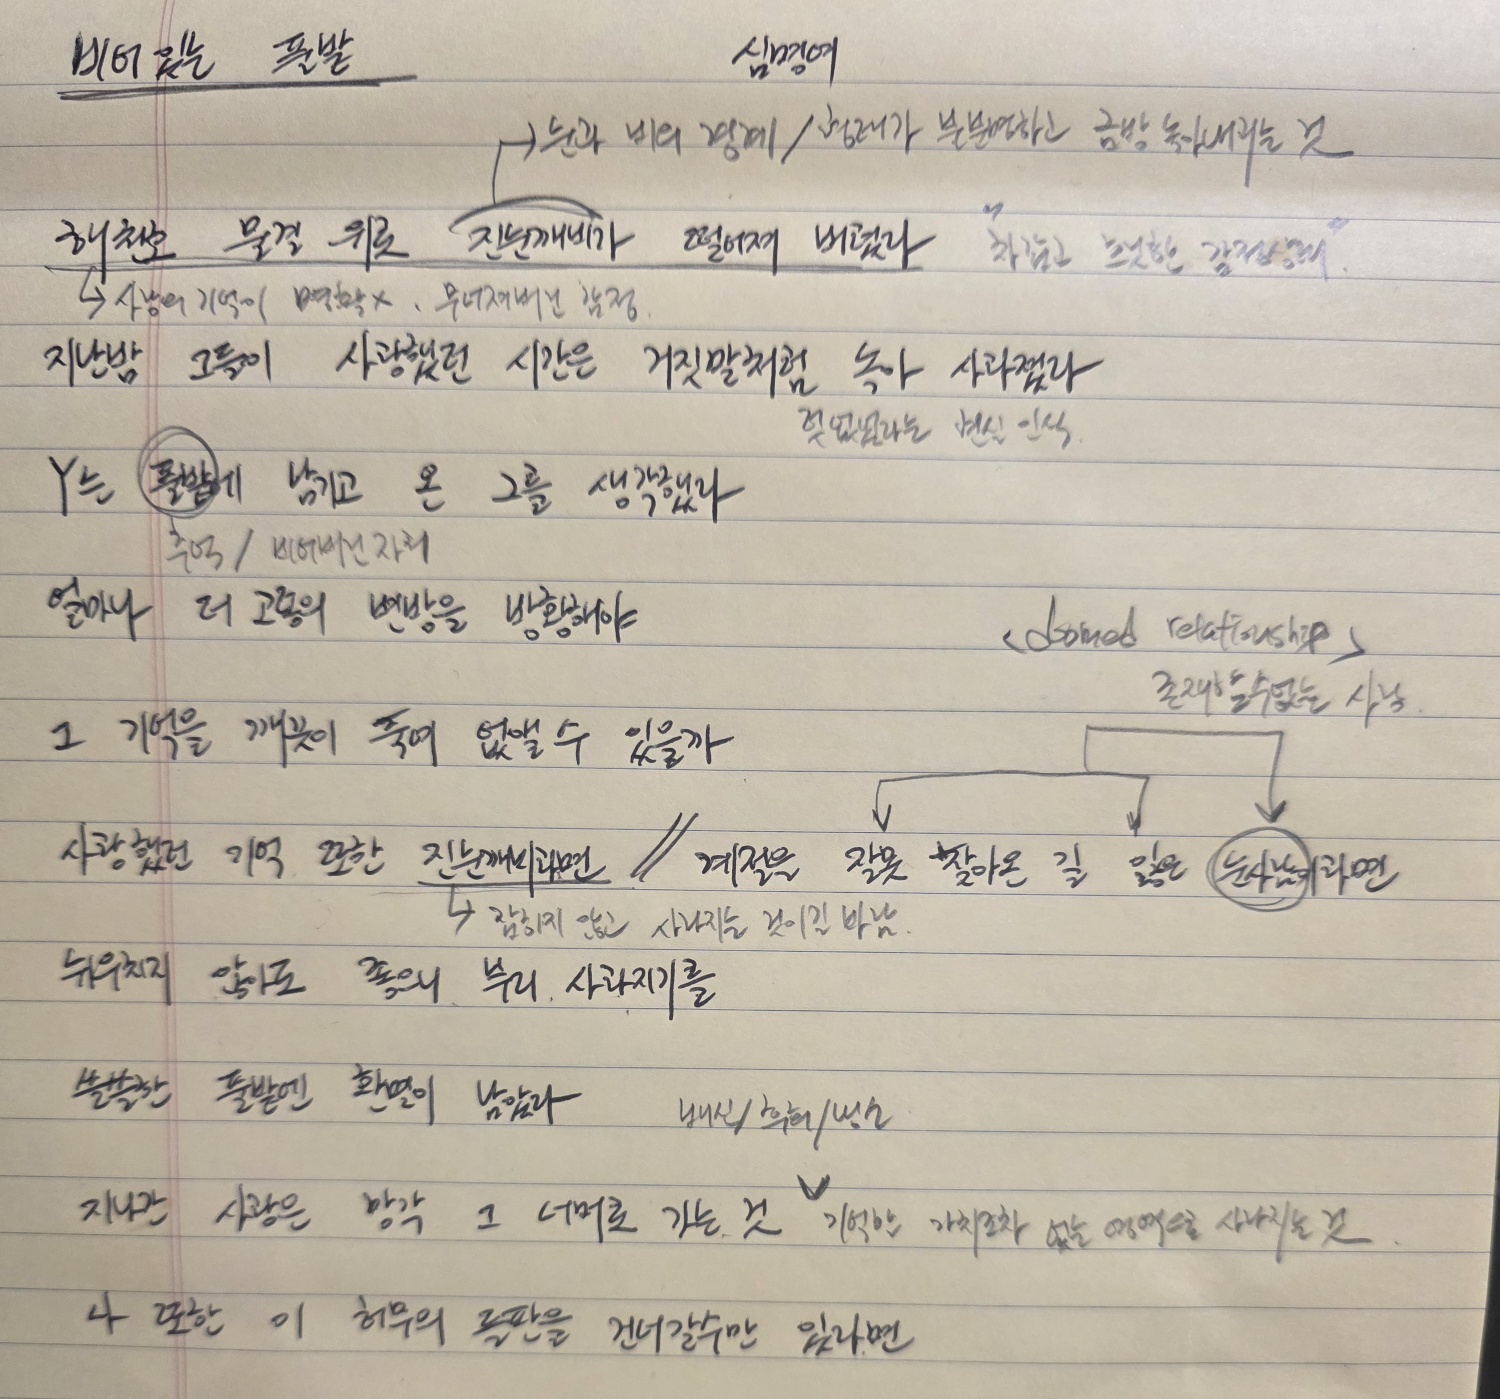 비어있는 풀밭 심명여
→ 눈과 비의 경계 / 형태가 불분명하고 금방 녹아내리는 것
해찬호 물결 위로 진눈깨비가 떨어져 버렸다 "차갑고 쓰릿한 감정상태".
↳ 사랑의 기억이 명확x. 무너져버린 감정.
지난밤 그들이 사랑했던 시간은 거짓말처럼 녹아 사라졌다
헛없없라는 현실 인식.
Y는 풀밭에 남기고 온 그를 생각했다
추억 / 비어버린 자리
얼마나 더 고통의 변방을 방황해야
<doomed relationship>
존재할수없는 사랑.
그 기억을 깨끗이 죽여 없앨 수 있을까
사랑했던 기억 또한 진눈깨비라면 // 계절을 잘못 찾아온 길 잃은 눈사람이라면
↳ 잡히지 않고 사라지는 것이길 바람.
뉘우치지 않아도 좋으니 부디 사라지기를
쓸쓸한 풀밭엔 환멸이 남았다 배신/후회/냉소
지나간 사랑은 망각 그 너머로 가는 것 ∨ 기억할 가치조차 없는 영역으로 사라지는 것.
나 또한 이 허무의 들판을 건너갈수만 있다면